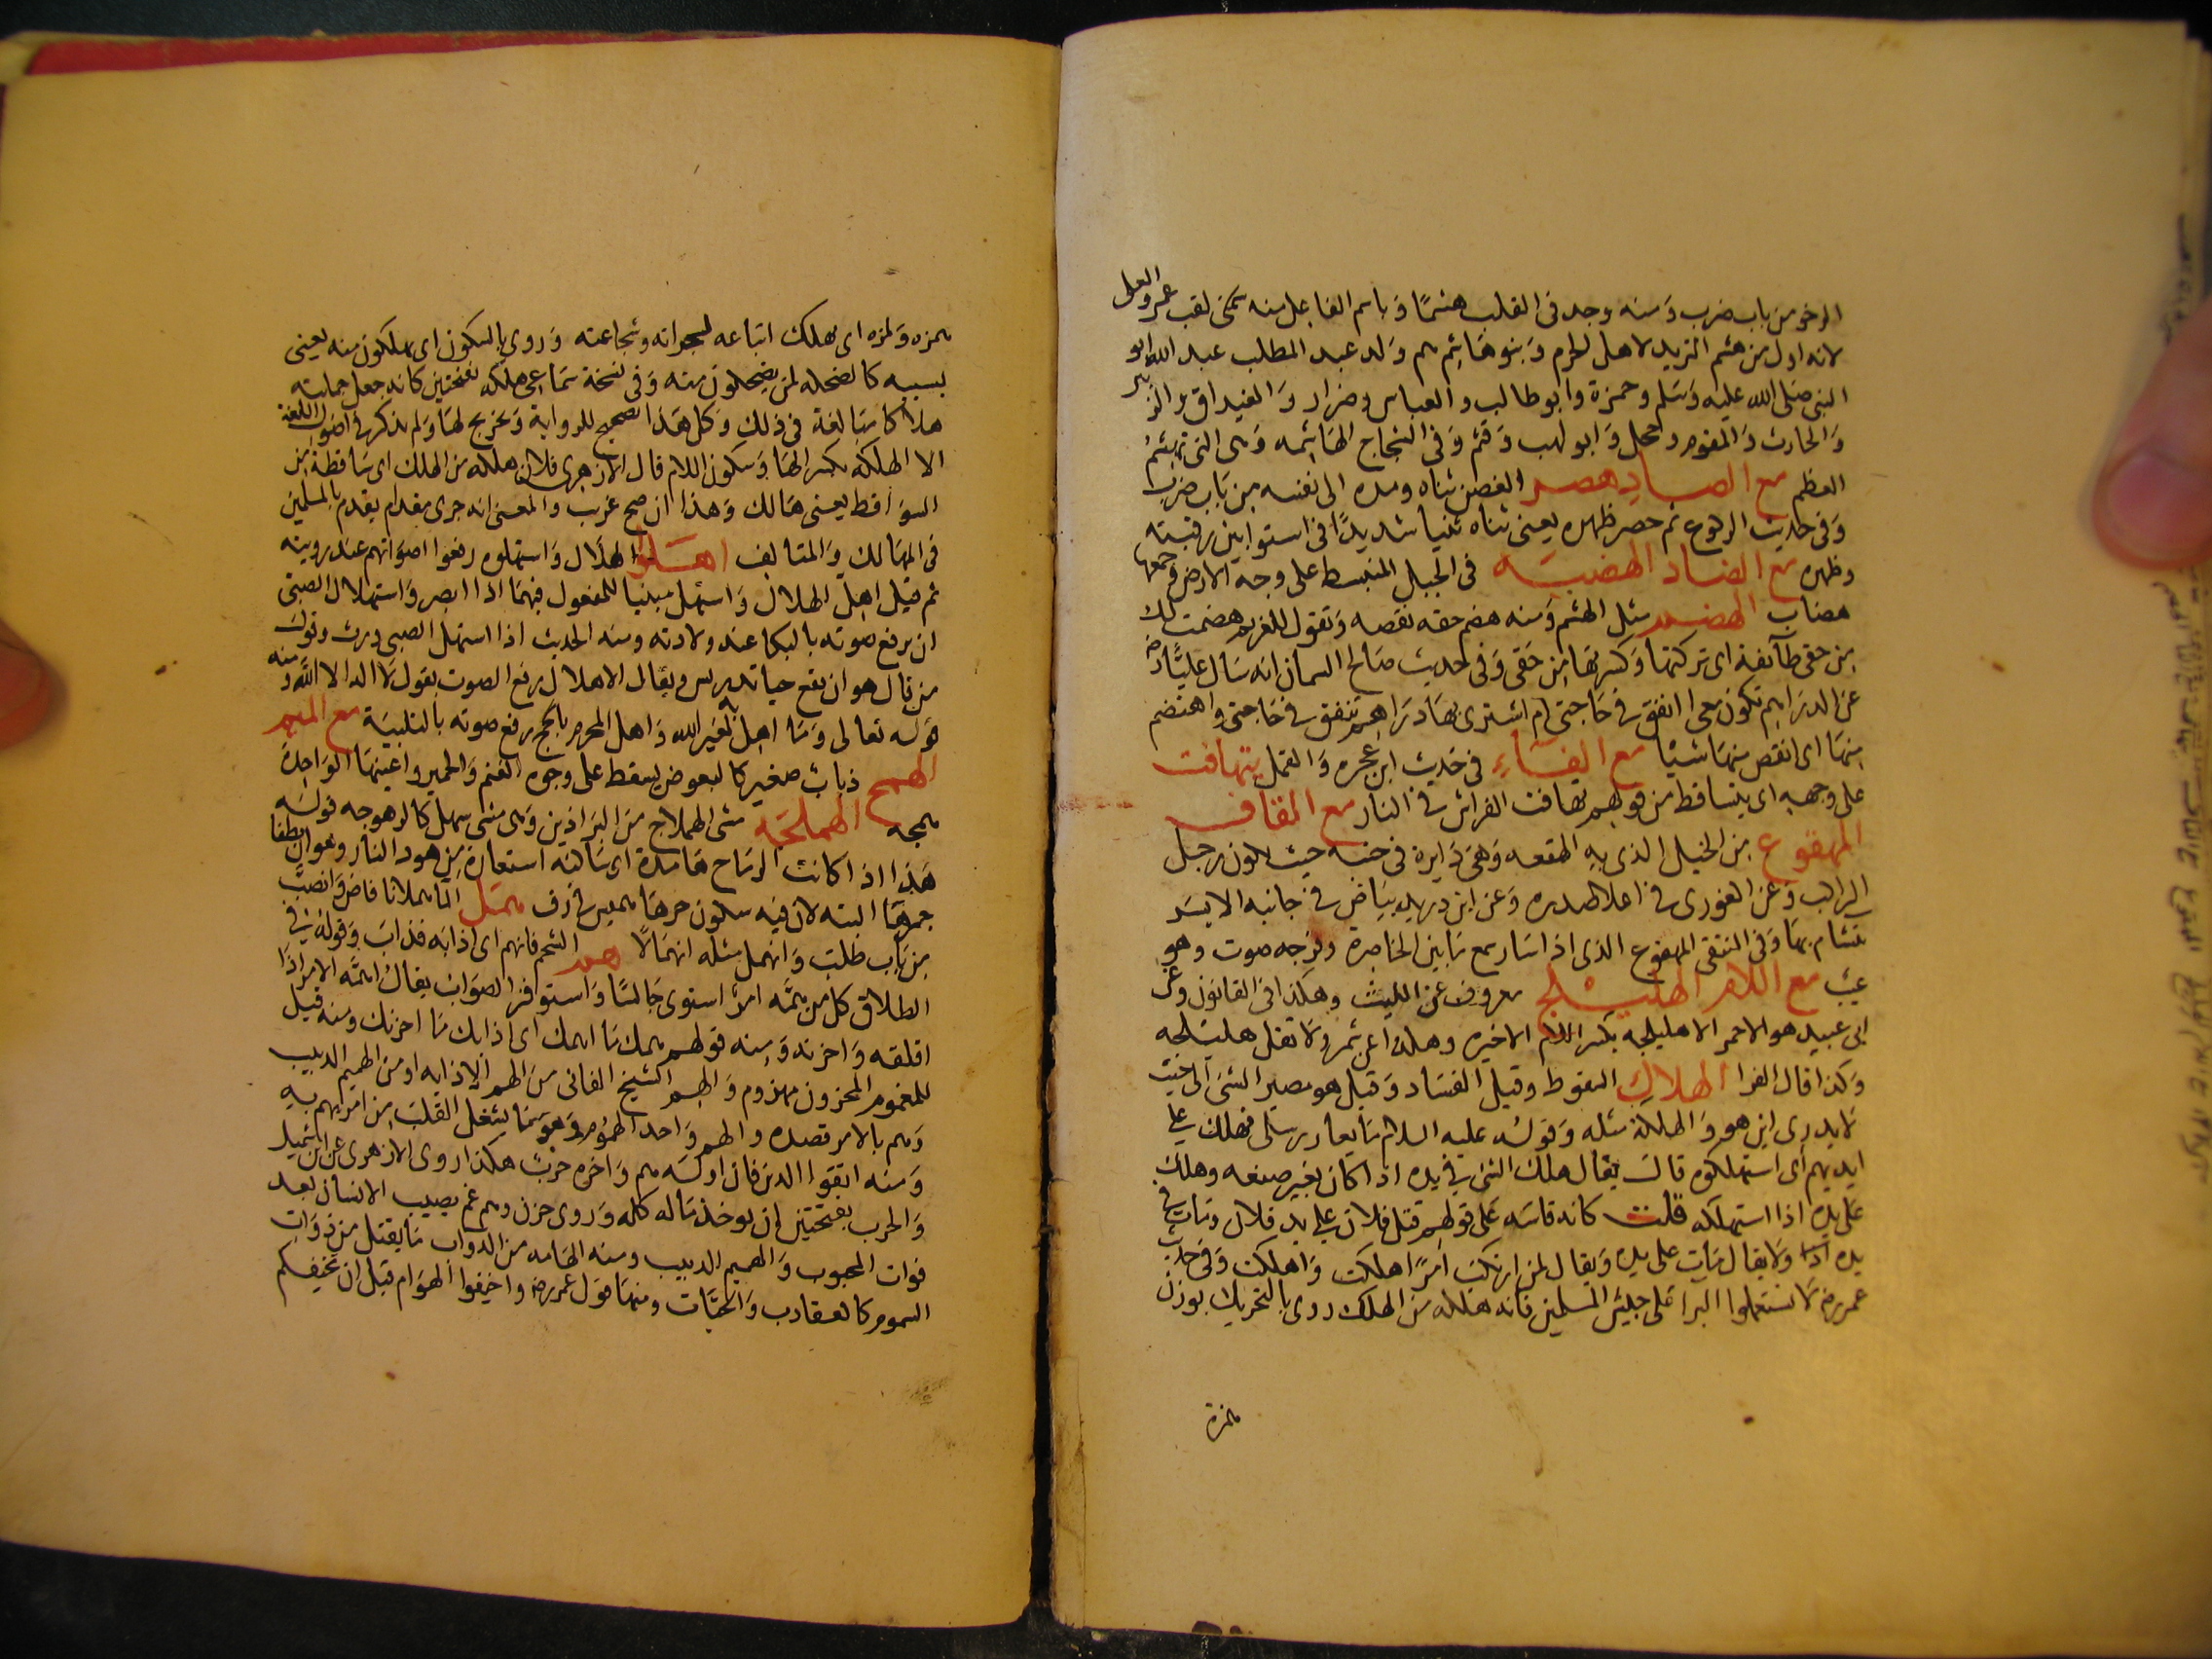 الرخو من باب ضرب وَمنه وجد فى القلب هشمًا وَ باسم الفاعل منه سمى لقب عمرو العلى
لانه اول من هشم الثريد لاهل الحرم وَ بنو هَاشِم هم وَلد عبد المطلب عبد الله ابو
النبى صَلى الله عليه وَسَلم وحمزة وابو طالب والعباس وضرار وَالغيداق والزبير
وَالحارث وَالمقوم وحجل وَابو لهب وَقثم وَفى الشجاج الهَاشِمه وَهى التى تهشم
العظم مع الصاد هصر الغصن ثناه ومده الى نفسه من بَاب ضرب
وَفى حديث الركوع ثم هصر ظهره يعنى ثناه ثنيا شديدًا فى استوا بين رقبته
وظهره مع الضاد الهضبَه فى الجبل المنبسط على وجه الارض وجمعها
هضاب الهضم مثل الهشم وَمنه هضم حقه نقصه وَتقول للغريم هضمت لك
مِن حقى طَآئفة اى تركتها وَكسرتهَا مِن حَقى وَفى حديث صَالح السمان انه سَال عليًّا رض
عن الدرَاهم تكون معى لا تنفق فى حَاجتى ام اشترى بهَا درَاهم تنفق فى حَاجتى واهتضم
مِنهَا اى انقص منهَا شيئا مع الفَاءِ فى حَديث ابن عجره وَالقمل يتهافت
على وجهه اى يتساقط من قولهم تهافت الفراش فى النار مع القاف
المهقوع مِن الخيل الذى به الهقعه وَهىَ دَايرة فى جنبه حيث تكون رجل
الراكب وَعن الغورى فى اعلا صدره وَعن ابن دريد بيَاض فى جانبه الايسَر
يتشام بهَا وَفى المنتقى المهقوع الذى اذا سَار سمع مَا بين الخاصرة وفرجه صوت وهو
عيب مع اللام الهليلج معروف عن الليث وهكذا فى القانون وعن
ابى عبيد هو الاحمر الاهليلجه بكسر اللام الاخيره وهكذا عن شمر وَلا تقل هليلجه
وَكذا قال الفرا الهلاك السقوط وقيل الفسَاد وَقيل هو مصير الشئ الى حيث
لا يدرى اين هو وَالهلكة مثله وَقوله عليه السلام مَا يعار رسلى فهلك على
ايديهم اى استهلكوه قالَ يقال هلك الشئ فى يده اذا كان بغير صنعه وهلك
على يده اذا استهلكه قلت كانه قاسَه على قولهم قتل فلان على يد فلان ومات فى
يده وَلا يقال مَات على يده وَيقال لمن ارتكب امرًا هلكت وَاهلكت وَفى حديث
عمر رض لا تستعملوا البرا على جيش المسلمين فانه هلكه من الهلك روى بالتحريك بوزن
همزة
همزه وَلمزه اى يهلك اتباعه لجراته وشجاعته وَروى بالسكون اى يهلكون منه يعنى
بسببه كالضحكه لمن يضحكون منه وَفى نسخة سَمَاعى هلكه بفتحتين كانه جعل حمايته
هلاكا مبَالغة فى ذلك وَكل هَذا تصحيح للرواية وَتخريج لهَا وَلم يذكر فى اصول اللغة
الا الهلكه بكسر الهَا وَسكون اللام قال الازهرى فلان هلكه من الهلك اى سَاقطة من
السواقط يعنى هَالك وَهذا ان صح غريب والمعنى انه جرى مقدام يقدم بالمسلمين
فى المهَالك وَالمتالف اهَلوا الهلال وَاستهلوه رفعوا اصوَاتهم عند رويته
ثم قيل اهل الهلال وَاستهل مبنيا للمفعول فيهمَا اذا ابصر وَاستهلال الصبى
ان يرفع صوته بالبكا عند ولادته ومنه الحديث اذا استهل الصبى ورث وقول
من قال هو ان يقع حيا تدريس وَيقال الاهلال رفع الصوت بقول لا اله الا الله وَمنه
قوله تعالى وَمَا اهِل به لغير الله وَاهل المحرم بالحج رفع صوته بالتلبيَة مع الميم
الهمج ذباب صغير كالبعوض يسقط على وجوه الغنم وَالحمير واعينهَا الوَاحِدة
همجه الهملجَه مشى الهملاج مَن البرَاذين وَهى مشى سهل كالرهوجه قوله
هَذا اذا كانت الريَاح هَامدة اى سَاكنه استعارة مِن همود النار وَهو ان يطفا
جمرهَا البته لان فيه سكون حرهَا همل الما هملانا فاض وَانصب
مِن بَاب طلب وَانهمل مثله انهمَالا هم الشحم فانهم اى اذابه فذاب وَقوله فى
الطلاق كل من همَّه امرٌ استوى جَالسًا وَاستوفز الصوَاب يقال اهمَّه الامر اذَا
اقلقه وَاحزنه وَمِنه قولهم همك مَا اهمك اى اذابك مَا احزنك ومنه قيل
للمغموم المحزون مهموم وَالهِم الشيخ الفانى من الهم الاذابه او من الهميم الدبيب
وَهم بالامر قصده والهم وَاحد الهموم وَهو مَا يشغل القلب من امر يهم به
وَمنه اتقوا الدين فان اوله هم وَاخره حرب هكذا روى الازهرى عن ابن شميل
وَالحرب بفتحتين ان يوخذ مَاله كله وَروى حزن وهم غم يصيب الانسان بعد
فوات المحبوب وَالهميم الدبيب ومنه الهَامه من الدواب مَا يقتل من ذوَات
السموم كالعقارب وَالحيَّات ومنهَا قول عمر رض واخيفوا الهوَام قبل ان تخيفكم